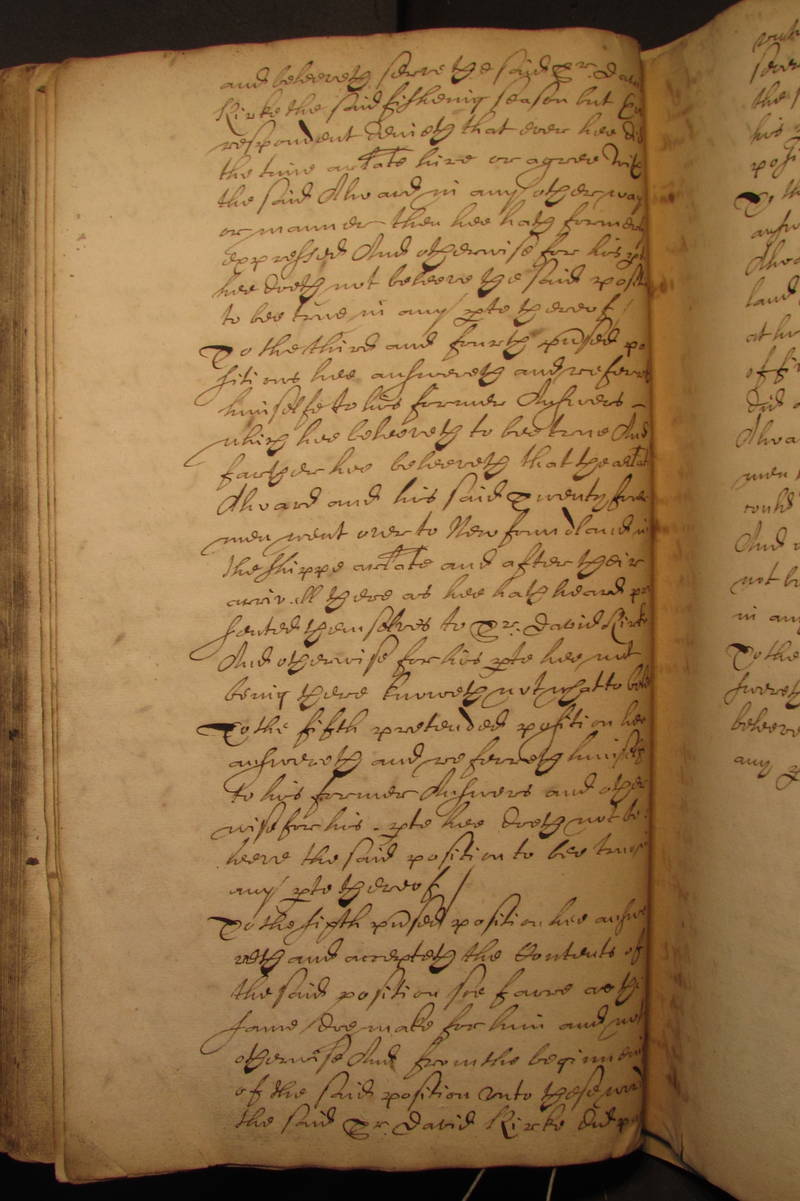 and beleeveth serve the said Sr. Davi
Kirke the said fisheing season but
respondent denieth that ever hee did
the time arlate hire or agree with
the said Alward in any other way
or manner then hee hath formerl
expressed And otherwise for his
hee doeth not beleeve the said positi
to bee true in any pte thereof /
To the third and fourth pnsed po
sitions hee answereth and referr
himselfe to his former Answers
which hee beleeveth to bee true And
farther hee beleeveth that the arlat
Alward and his said Twenty
men went over to Newfoundland in
the shippe arlate and after their
arrivall there as hee hath heard pre
sented themselves to Sr. David Kirke
And otherwise for his pte hee not
being there knoweth not what to bele
To the fifth pretended position hee
answereth and referreth himself
to his former Answers and other
wise for his pte hee doeth not be
leeve the said position to bee true
any pte thereof /
To the sixth pnsed position hee answe
reth and accepteth the Contents of
the said position soe farre as the
same doe make for him and not
otherwise And from the beginnein
of the said position unto these
the said Sr. David Kirke did

the
his
posi
To th
answ
Alwa
land
at
of
did
Alwa
men
could
And
not b
in any
To the
swereth
beleeve
any p